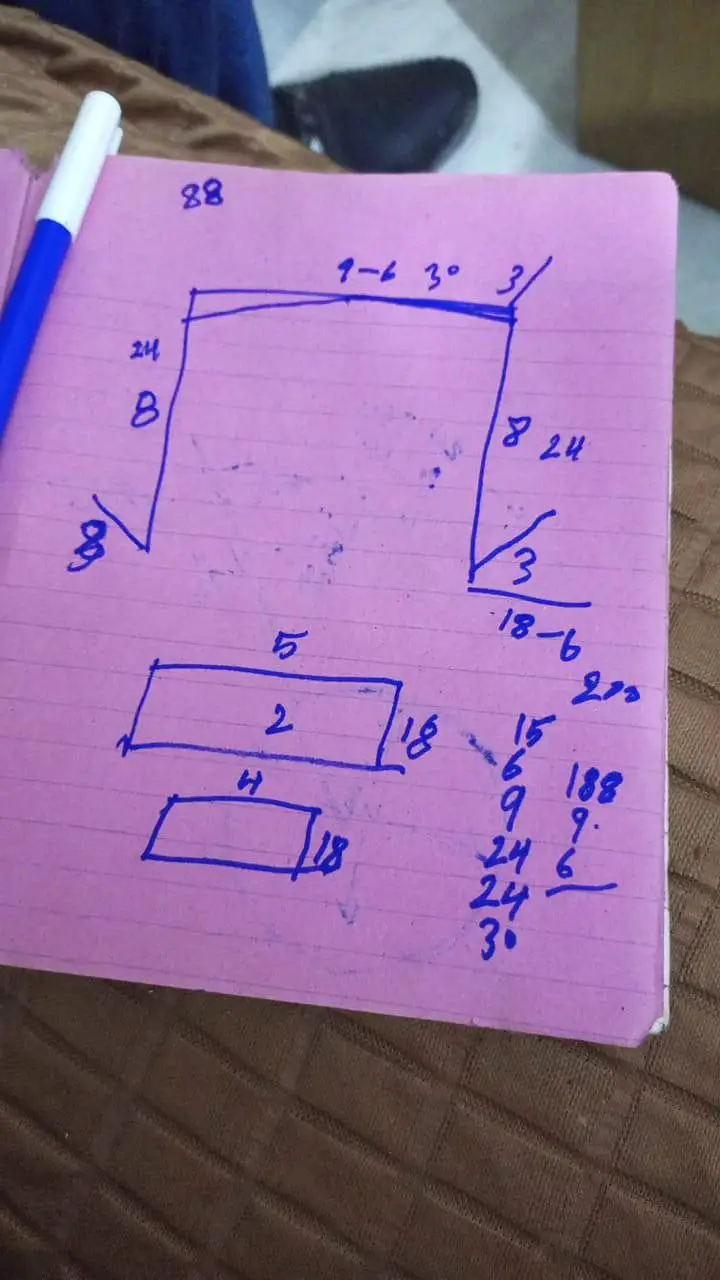 88
9-6 30 3
24
8
8 24
3
18-6
5
200
2 18
15
6 188
4
9 9.
18
24 6
24
30